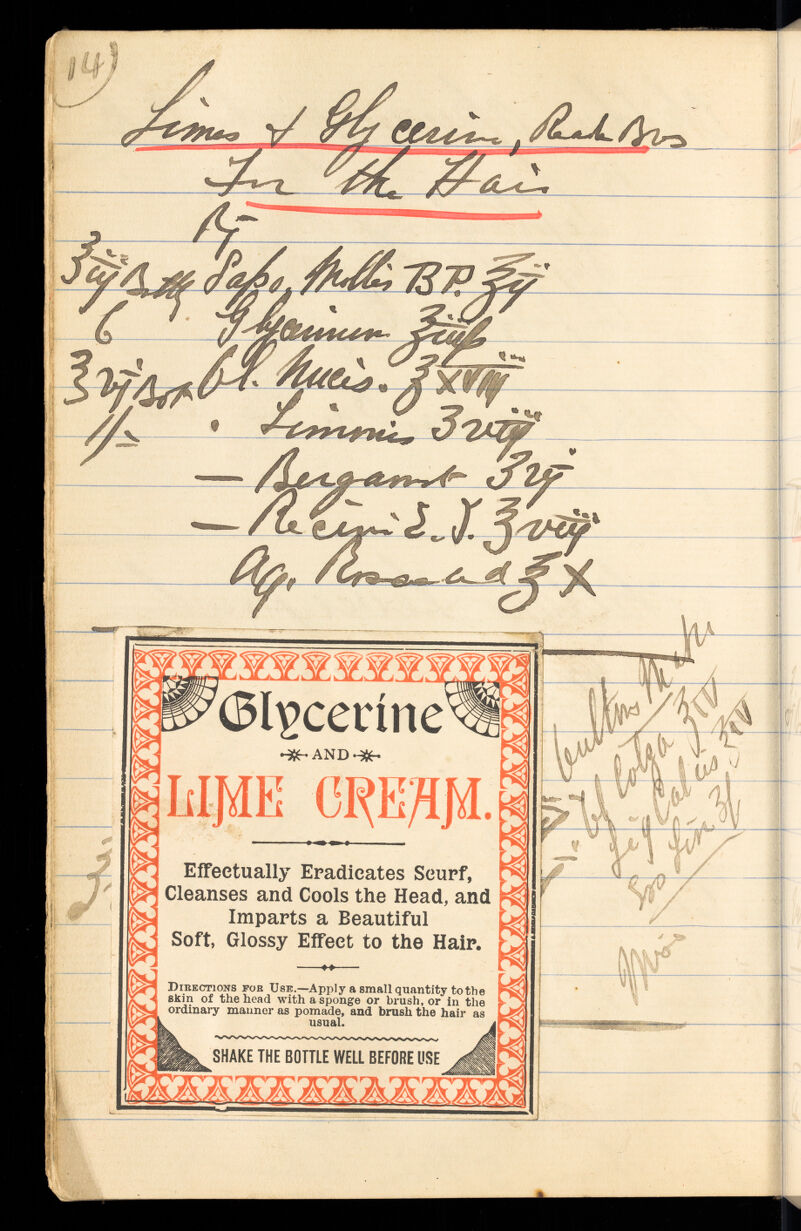 14)
Limes & Glycerine, Reade Bros
For the Hair
℞
℥iij Bottle Sapo, Mollis B.P. ℥ij
6 Glycerinum ℥iiiß
℥vj Bot Ol. Nucis. ℥XVIII
1/- " Limonis ʒviij
— Bergamot ʒvj
— Recini E.I. ℥viij
Aq. Rosae ad ℥X
Glycerine
AND
LIME CREAM.
Effectually Eradicates Scurf,
Cleanses and Cools the Head, and
Imparts a Beautiful
Soft, Glossy Effect to the Hair.
DIRECTIONS FOR USE.—Apply a small quantity to the
skin of the head with a sponge or brush, or in the
ordinary manner as pomade, and brush the hair as
usual.
SHAKE THE BOTTLE WELL BEFORE USE
Ol Colza ℥iv
Liq Calcis ℥iv
Ess Lim ʒſ
Misce